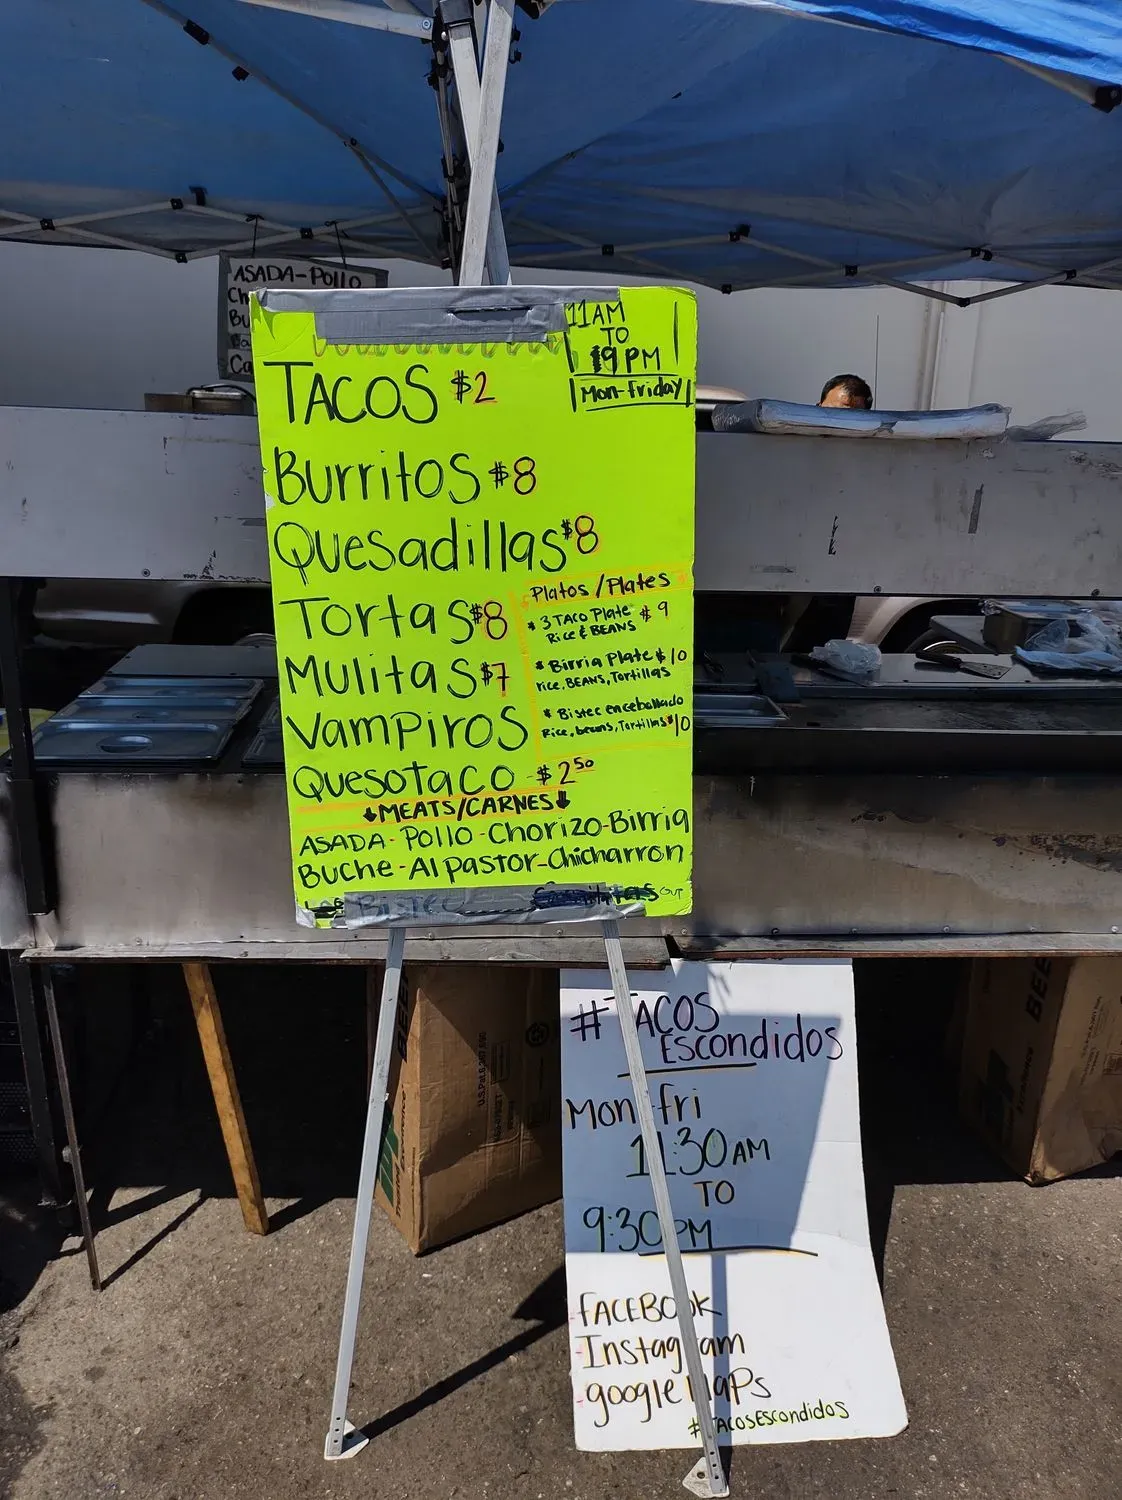 ASADA-Pollo
11AM
TO
9PM
Mon-friday
TACOS $2
Burritos $8
Quesadillas $8
Tortas $8
Mulitas $7
Vampiros
Quesotaco - $2 50
Platos/Plates
* 3 TACO Plate $9
Rice & BEANS
* Birria Plate $10
rice, BEANS, Tortillas
* Bistec encebollado
Rice, beans, Tortillas $10
↓MEATS/CARNES↓
ASADA-Pollo-Chorizo-Birria
Buche-Al pastor-Chicharron
Bistec
#TACOS
Escondidos
Mon-fri
11:30AM
TO
9:30PM
-FACEBOOK
-Instagram
-google MAPs
#TACOSEscondidos
BEE